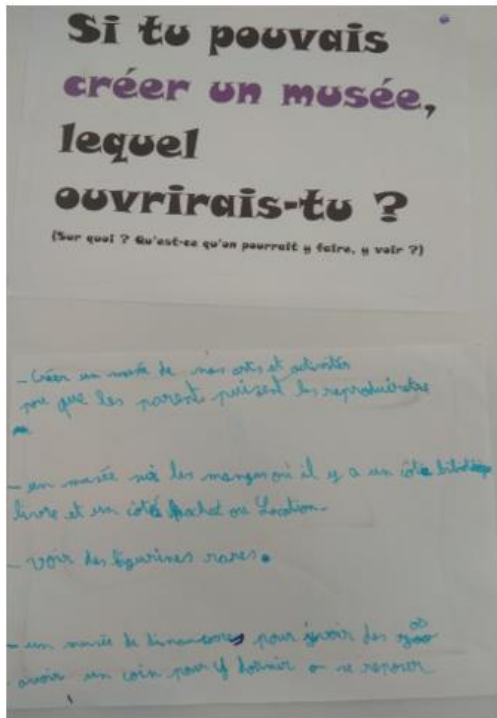 Si tu pouvais
créer un musée,
lequel
ouvrirais-tu ?
(Sur quoi ? Qu'est-ce qu'on pourrait y faire, y voir ?)
- Créer un musée de nos arts et activités
pour que les parents puissent les reproduire
- un musée sur les mangas où il y a un côté
livre et un côté achat ou Location
- voir des figurines rares.
- un musée de dinosaures pour avoir des
avoir un coin pour y dormir ou se reposer